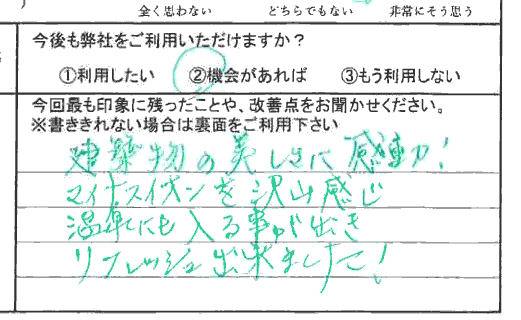 全く思わない どちらでもない 非常にそう思う
今後も弊社をご利用いただけますか？
①利用したい ②機会があれば ③もう利用しない
今回最も印象に残ったことや、改善点をお聞かせください。
※書ききれない場合は裏面をご利用下さい
建築物の美しさに感動！
マイナスイオンを沢山感じ
温泉にも入る事が出き
リフレッシュ出来ました！